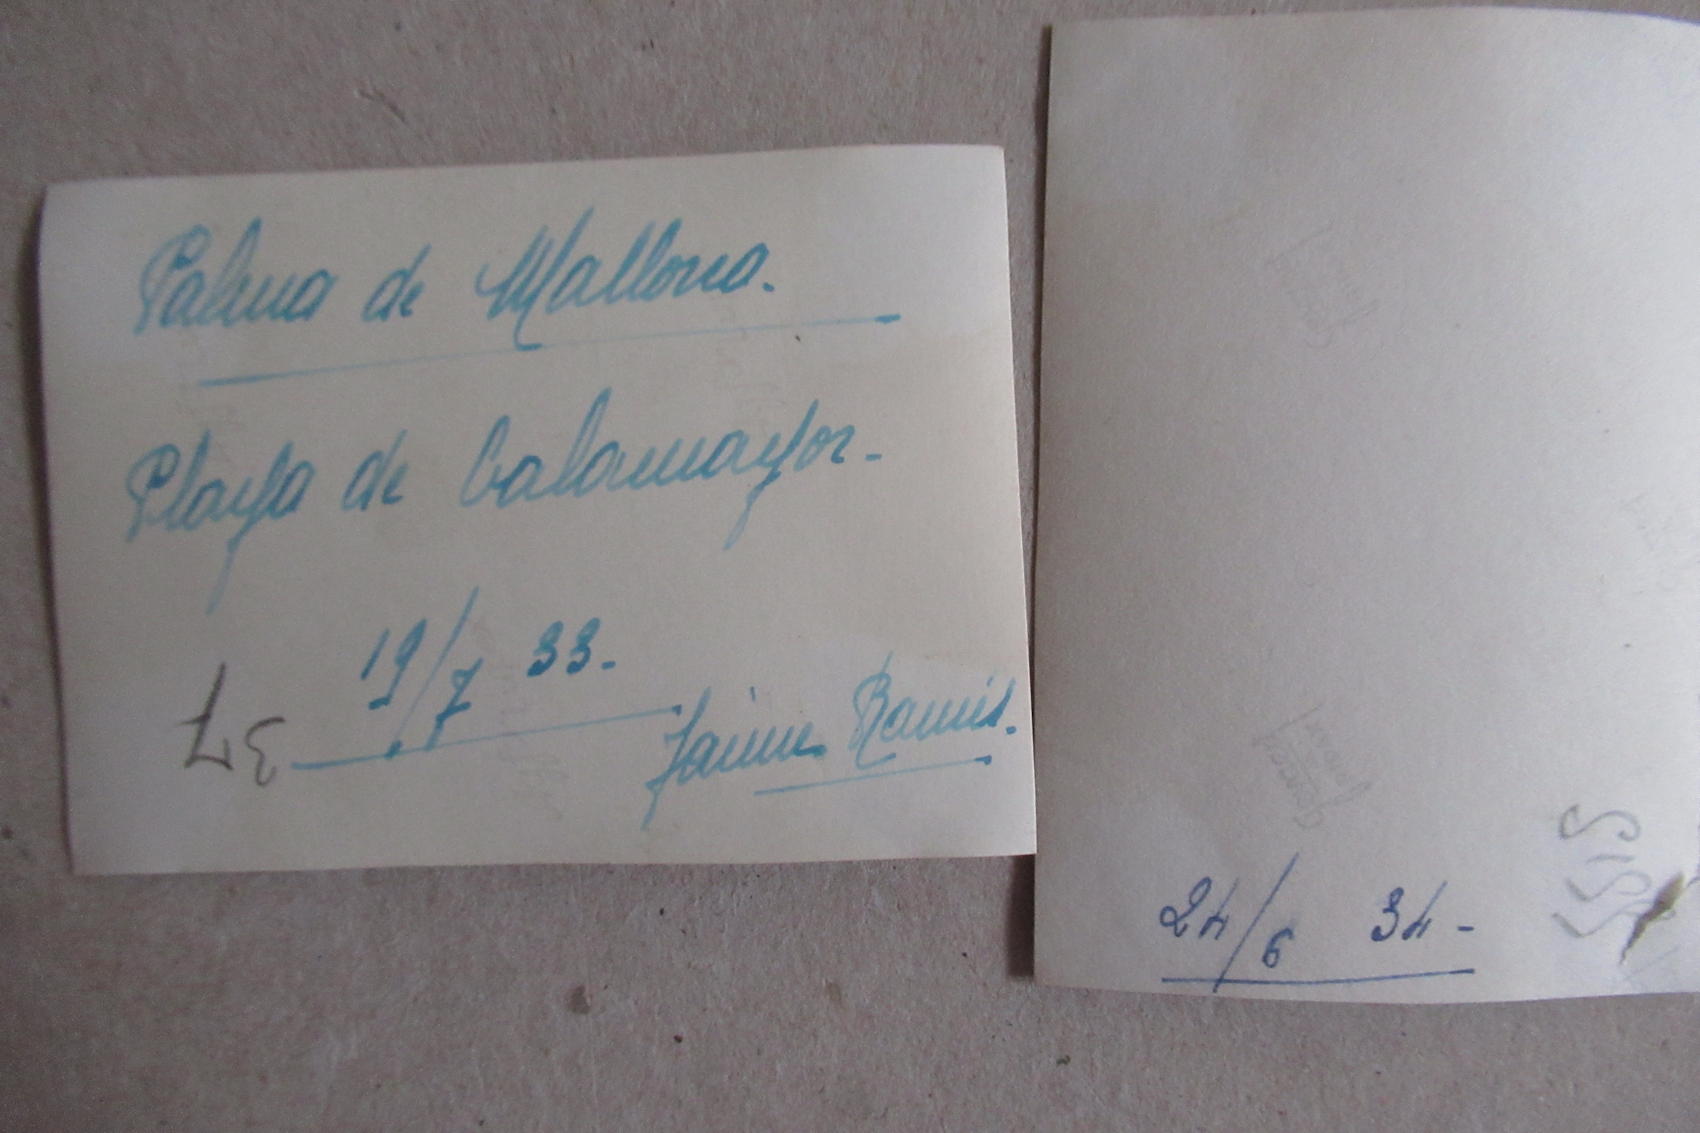 Palma de Mallorca.
Playa de Calamayor.
19/7 33.
37
Jaime Ramis.
24/6 34-